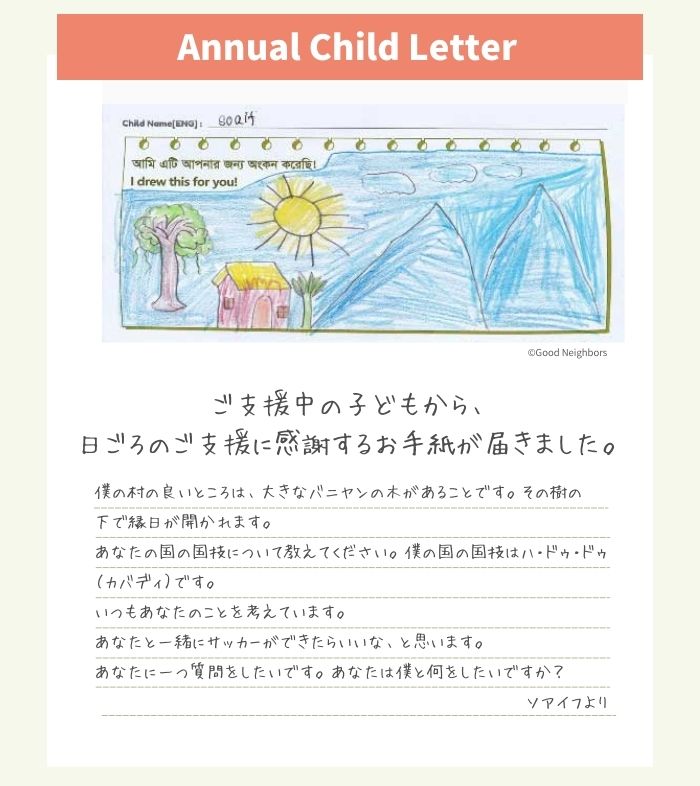 Annual Child Letter
Child Name[ENG] : soaif
আমি এটি আপনার জন্য অংকন করেছি!
I drew this for you!
©Good Neighbors
ご支援中の子どもから、
日ごろのご支援に感謝するお手紙が届きました。
僕の村の良いところは、大きなバニヤンの木があることです。その樹の
下で縁日が開かれます。
あなたの国の国技について教えてください。僕の国の国技はハ・ドゥ・ドゥ
(カバディ)です。
いつもあなたのことを考えています。
あなたと一緒にサッカーができたらいいな、と思います。
あなたに一つ質問をしたいです。あなたは僕と何をしたいですか?
ソアイフより